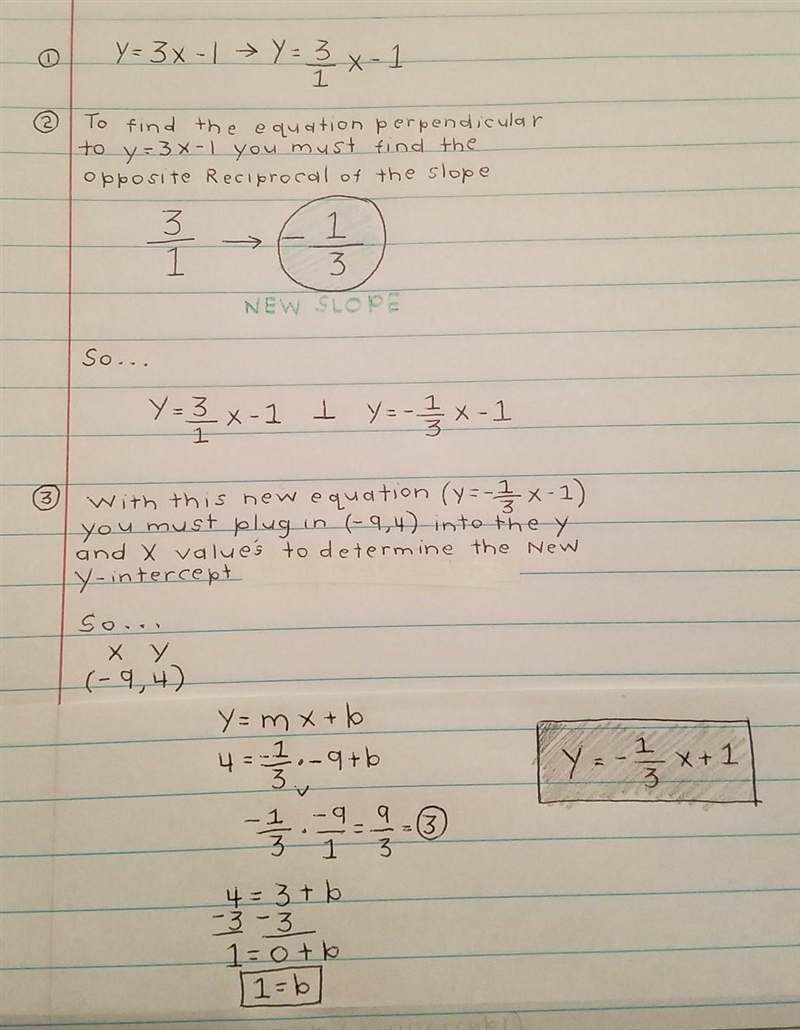 ① y=3x-1 → y=3/1 x-1
② To find the equation perpendicular
to y=3x-1 you must find the
opposite Reciprocal of the slope
3/1 → -1/3
NEW SLOPE
So...
y=3/1 x-1 ⊥ y=-1/3 x-1
③ With this new equation (y=-1/3 x-1)
you must plug in (-9,4) into the y
and x value's to determine the New
y-intercept
So...
x y
(-9,4)
y=mx+b
4=-1/3·-9+b
y=-1/3 x+1
-1/3·-9/1=9/3=③
4=3+b
-3 -3
1=0+b
1=b